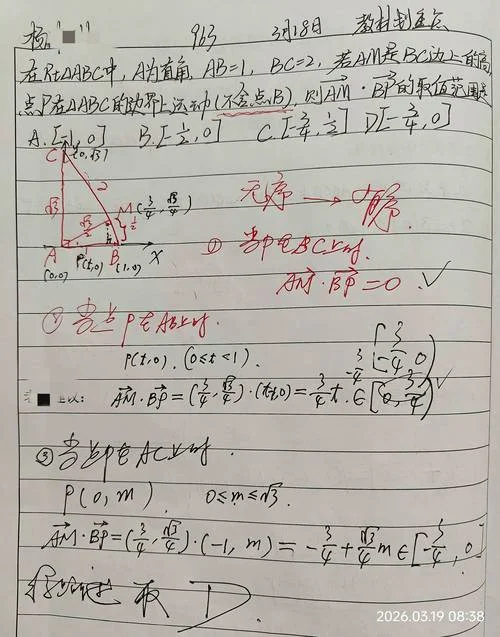 杨" 963 3月18日 教材划重点
在Rt△ABC中,A为直角,AB=1,BC=2,若AM是BC边上的高,
点P在△ABC的边界上运动(不含点B),则AM·BP的取值范围是
A.[-1,0] B.[-1/2,0] C.[-3/4,1/2] D[-3/4,0]
C (0,√3)
2
√3
M(3/4,√3/4)
√3/2
1/2
A P(t,0) B X
(0,0) (1,0)
无序→有序.
① 当P在BC上时.
AM·BP=0 ✓
② 当点P在AB上时.
P(t,0).(0≤t<1).
[-3/4,0)
AM·BP=(3/4,√3/4)·(t-1,0)=3/4t.∈[0,3/4) ✓
-3/4
③当点P在AC上时.
P(0,m) 0≤m≤√3.
AM·BP=(3/4,√3/4)·(-1,m)=-3/4+√3/4m∈[-3/4,0]
综上所述 取 D.
2026.03.19 08:38